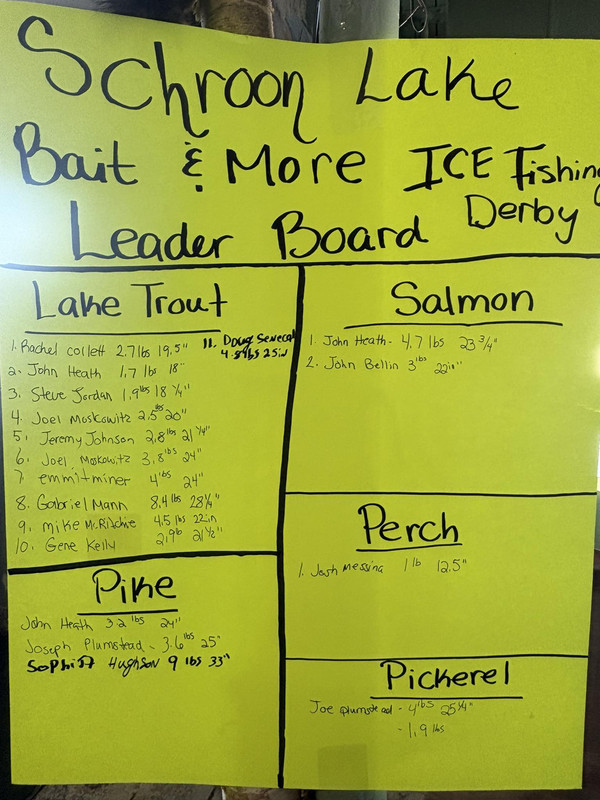 Schroon Lake
Bait & More ICE Fishing
Derby
Leader Board
Lake Trout
1. Rachel Collett 2.7 lbs 19.5"
2. John Heath 1.7 lbs 18"
3. Steve Jordan 1.9 lbs 18 1/4"
4. Joel Moskowitz 2.5 lbs 20"
5. Jeremy Johnson 2.8 lbs 21 1/4"
6. Joel Moskowitz 3.8 lbs 24"
7. emmitminer 4 lbs 24"
8. Gabriel Mann 8.4 lbs 28 1/4"
9. mike Mc.Ritchie 4.5 lbs 22in
10. Gene Kelly 2.9 lb 21 1/2"
11. Doug Senecal
lbs 25in
Salmon
1. John Heath - 4.7 lbs 23 3/4"
2. John Bellin 3 lbs 22in"
Perch
1. Josh Messina 1 lb 12.5"
Pike
John Heath 3.2 lbs 24"
Joseph Plumstead - 3.6 lbs 25"
Hughson 9 lbs 33"
Pickerel
Joe plumstead - 4 lbs 25 1/4"
- 1.9 lbs